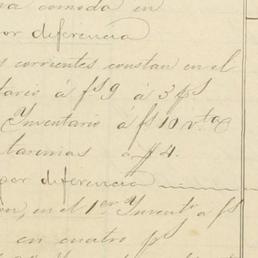 na comoda en
por diferencia
s corrientes constan en el
tario á fs 9 á 3 ps
Inventario á fs 10 vta
taronias a ff 4.
por diferencia
en el 1er Invento a fs
en cuatro ps